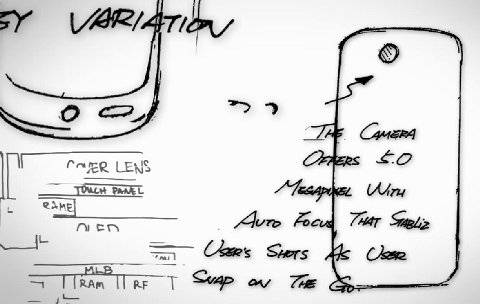 VARIATION
THE CAMERA
OFFERS 5.0
MEGAPIXEL WITH
AUTO FOCUS THAT STABLIZ
USER'S SHOTS AS USER
SNAP ON THE GO.
COVER LENS
TOUCH PANEL
RAME
OLED
MLB
RAM RF